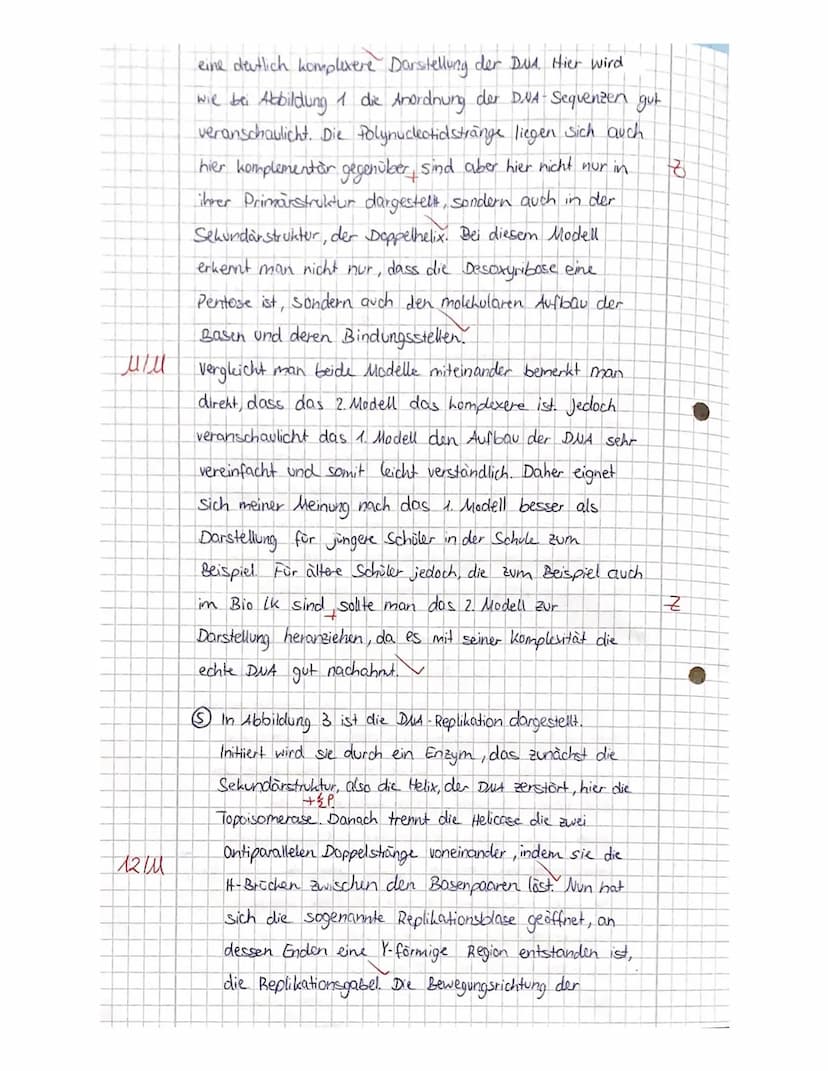 eine deutlich komplexere Darstellung der DNA. Hier wird
wie bei Abbildung 1 die Anordnung der DNA-Sequenzen gut
veranschaulicht. Die Polynucleotidstränge liegen sich auch
hier komplementär gegenüber, sind aber hier nicht nur in
Z
ihrer Primärstruktur dargestellt, sondern auch in der
Sekundärstruktur, der Doppelhelix. Bei diesem Modell
erkennt man nicht nur, dass die Desoxyribose eine
Pentose ist, sondern auch den molekularen Aufbau der
Basen und deren Bindungsstellen.
11/11
Vergleicht man beide Modelle miteinander bemerkt man
direkt, dass das 2. Modell das komplexere ist. Jedoch
veranschaulicht das 1. Modell den Aufbau der DNA sehr
vereinfacht und somit leicht verständlich. Daher eignet
sich meiner Meinung nach das 1. Modell besser als
Darstellung für jüngere Schüler in der Schule zum
Beispiel. Für ältere Schüler jedoch, die zum Beispiel auch
im Bio LK sind, sollte man das 2. Modell zur
Z
Darstellung heranziehen, da es mit seiner Komplexität die
echte DNA gut nachahmt.
⑤ In Abbildung 3 ist die DNA-Replikation dargestellt.
Initiiert wird sie durch ein Enzym, das zunächst die
Sekundärstruktur, also die Helix, der DNA zerstört, hier die
Topoisomerase. Danach trennt die Helicase die zwei
antiparallelen Doppelstränge voneinander, indem sie die
12/11
H-Brücken zwischen den Basenpaaren löst. Nun hat
sich die sogenannte Replikationsblase geöffnet, an
dessen Enden eine Y-förmige Region entstanden ist,
die Replikationsgabel. Die Bewegungsrichtung der